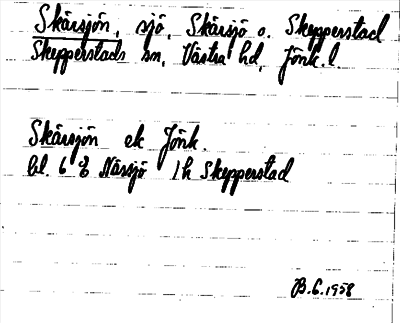 Skärsjön, sjö, Skärsjö o. Skepperstad
Skepperstads sn, Västra hd, Jönk. l.
Skärsjön ek Jönk.
bl. 6 8 Nässjö 1h Skepperstad
B.G. 1958